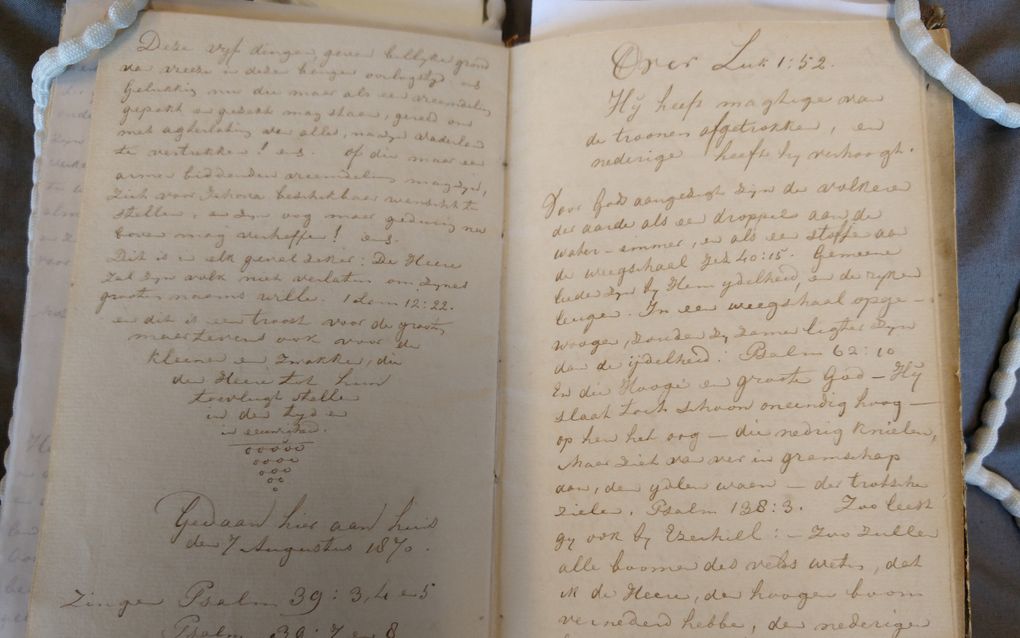 Deze vyf dingen geven billyke grond
van vreeze in deze bange oorlogstyd ens
Gelukkig nu die maar als een vreemdeling
gepakt en gezakt mag staan, gereed om
met agterlating van alles, naar zyn Vaderland
te vertrekken! ens. of die maar een
armen biddenden vreemdeling mag zyn,
zich voor Jehova beschikbaar wenscht te
stellen, en zyn oog maar geduurig naar
boven mag verheffen! ens.
Dit is in elk geval zeker: De Heere
zal zyn volk niet verlaten om zynes
grooten naams wille. 1 Sam 12:22.
en dit is een troost voor de groote
maar tevens ook voor de
kleene en zwakke, die
den Heere tot hun
toevlugt stellen
in den tyd en
in eeuwigheid.
Gedaan hier aan huis
den 7 Augustus 1870.
Zingen Psalm 39: 3, 4 en 5
Psalm 39: 7 en 8
Over Luk 1:52.
Hij heeft magtige van
de troonen afgetrokken, en
nederige heeft hy verhoogt.
Voor Gods aangezigt zyn de volkeren
der aarde als een droppel aan de
water-emmer, en als een stofje aan
de weegschaal Jes 40:15. Gemeene
lieden zyn by Hem ydelheid, en de ryken
leugen. In een weegschaal opge-
woogen, zouden zy zamen ligter zyn
dan de ijdelheid. Psalm 62:10
En die Hooge en groote God – Hy
slaat toch schoon oneindig hoog –
op hen het oog – die nedrig knielen,
Maar ziet van ver in gramschap
aan, den ydlen waan – der trotsche
zielen. Psalm 138:3. Zoo leest
gy ook by Ezechiel: – Zoo zullen
alle boomen des velds weten, dat
ik de Heere, den hoogen boom
vernederd hebbe, den nederigen